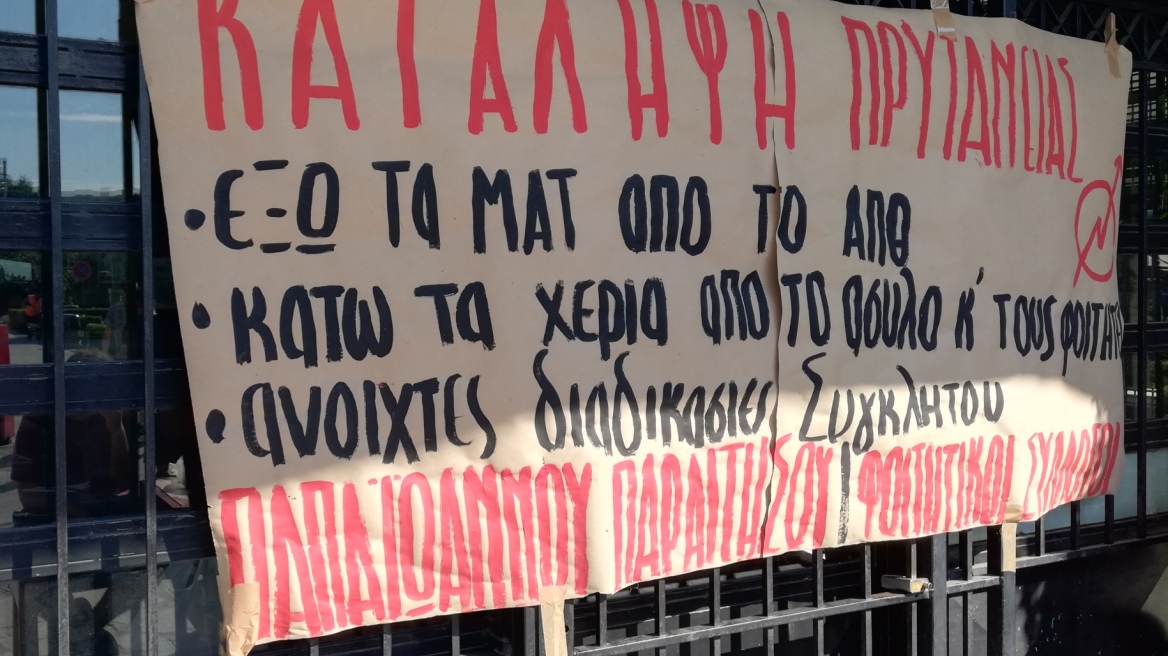 ΚΑΤΑΛΗΨΗ ΠΡΥΤΑΝΕΙΑΣ
• ΕΞΩ Τα ΜΑΤ αΠΟ ΤΟ ΑΠΘ
• Κατω τα χερια απο το ασυλο κ' τους φοιτητ
• ανοιχτες διαδικασιες Συγκλητου
ΠΑΠΑΪΩΑΝΝΟΥ ΠΑΡΑΙΤΗΣΟΥ | ΦΟΙΤΗΤΙΚΟΙ ΣΥΛΛΟΓΟΙ